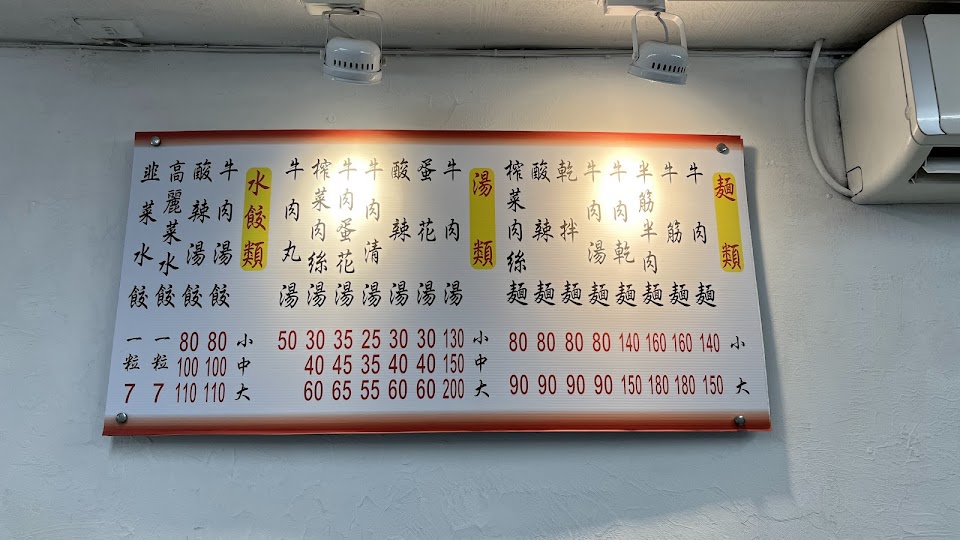 麵類
小 大
牛肉麵 140 150
牛筋麵 160 180
半筋半肉麵 160 180
牛肉乾麵 140 150
牛肉湯麵 80 90
乾拌麵 80 90
酸辣麵 80 90
榨菜肉絲麵 80 90
湯類
小 中 大
牛肉湯 130 150 200
蛋花湯 30 40 60
酸辣湯 30 40 60
牛肉清湯 25 35 55
牛肉蛋花湯 35 45 65
榨菜肉絲湯 30 40 60
牛肉丸湯 50
水餃類
小 中 大
牛肉湯餃 80 100 110
酸辣湯餃 80 100 110
高麗菜水餃 一粒 7
韭菜水餃 一粒 7